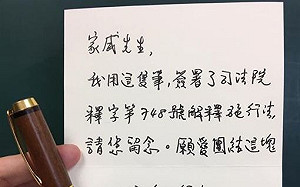 家威先生，
我用這隻筆，簽署了司法院
釋字第748號解釋施行法，
請您留念。願愛團結這塊